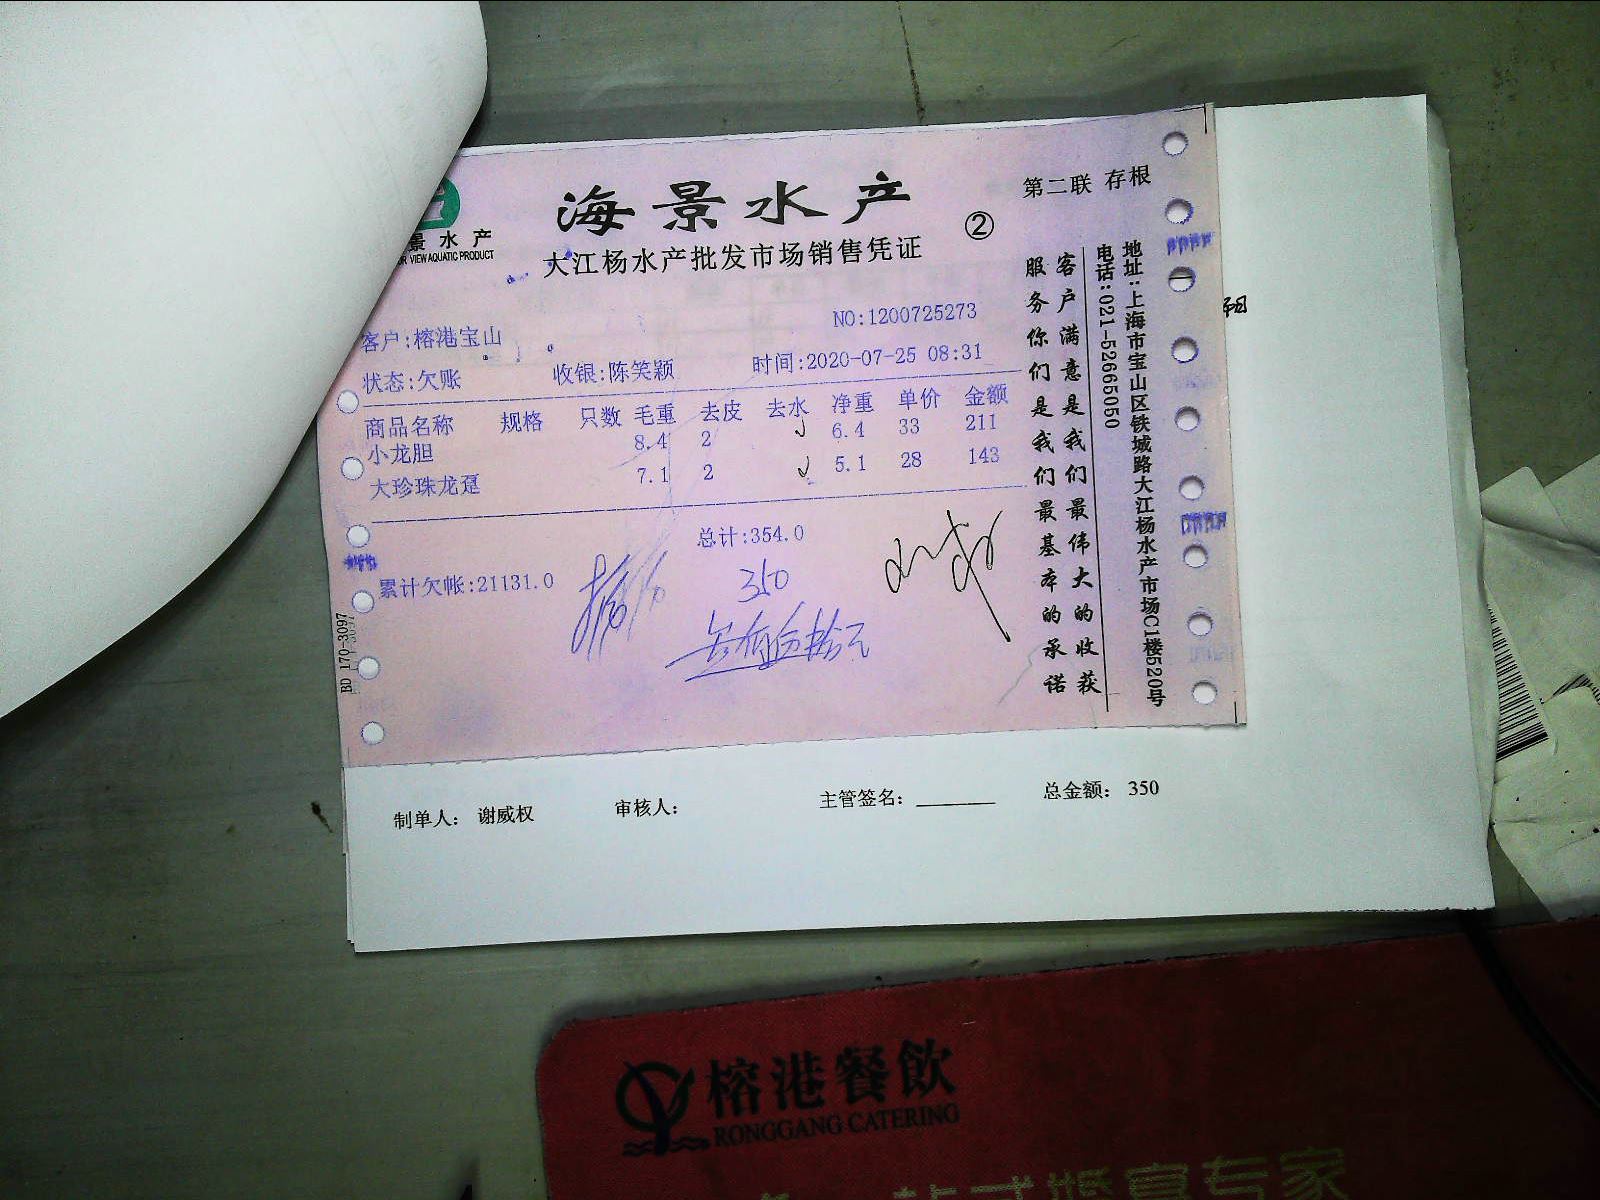 海景水产
②
第二联 存根
景水产
VIEW AQUATIC PRODUCT
大江杨水产批发市场销售凭证
NO:1200725273
客户:榕港宝山
状态:欠账 收银:陈笑颖 时间:2020-07-25 08:31
商品名称 规格 只数 毛重 去皮 去水 净重 单价 金额
小龙胆 8.4 2 6.4 33 211
大珍珠龙趸 7.1 2 5.1 28 143
总计:354.0
累计欠帐:21131.0
350
客户满意是我们最伟大的收获
服务你们是我们最基本的承诺
地址:上海市宝山区铁城路大江杨水产市场C1楼520号
电话:021-52665050
BD 170-3097
制单人: 谢威权 审核人: 主管签名: 总金额: 350
榕港餐飲
RONGGANG CATERING